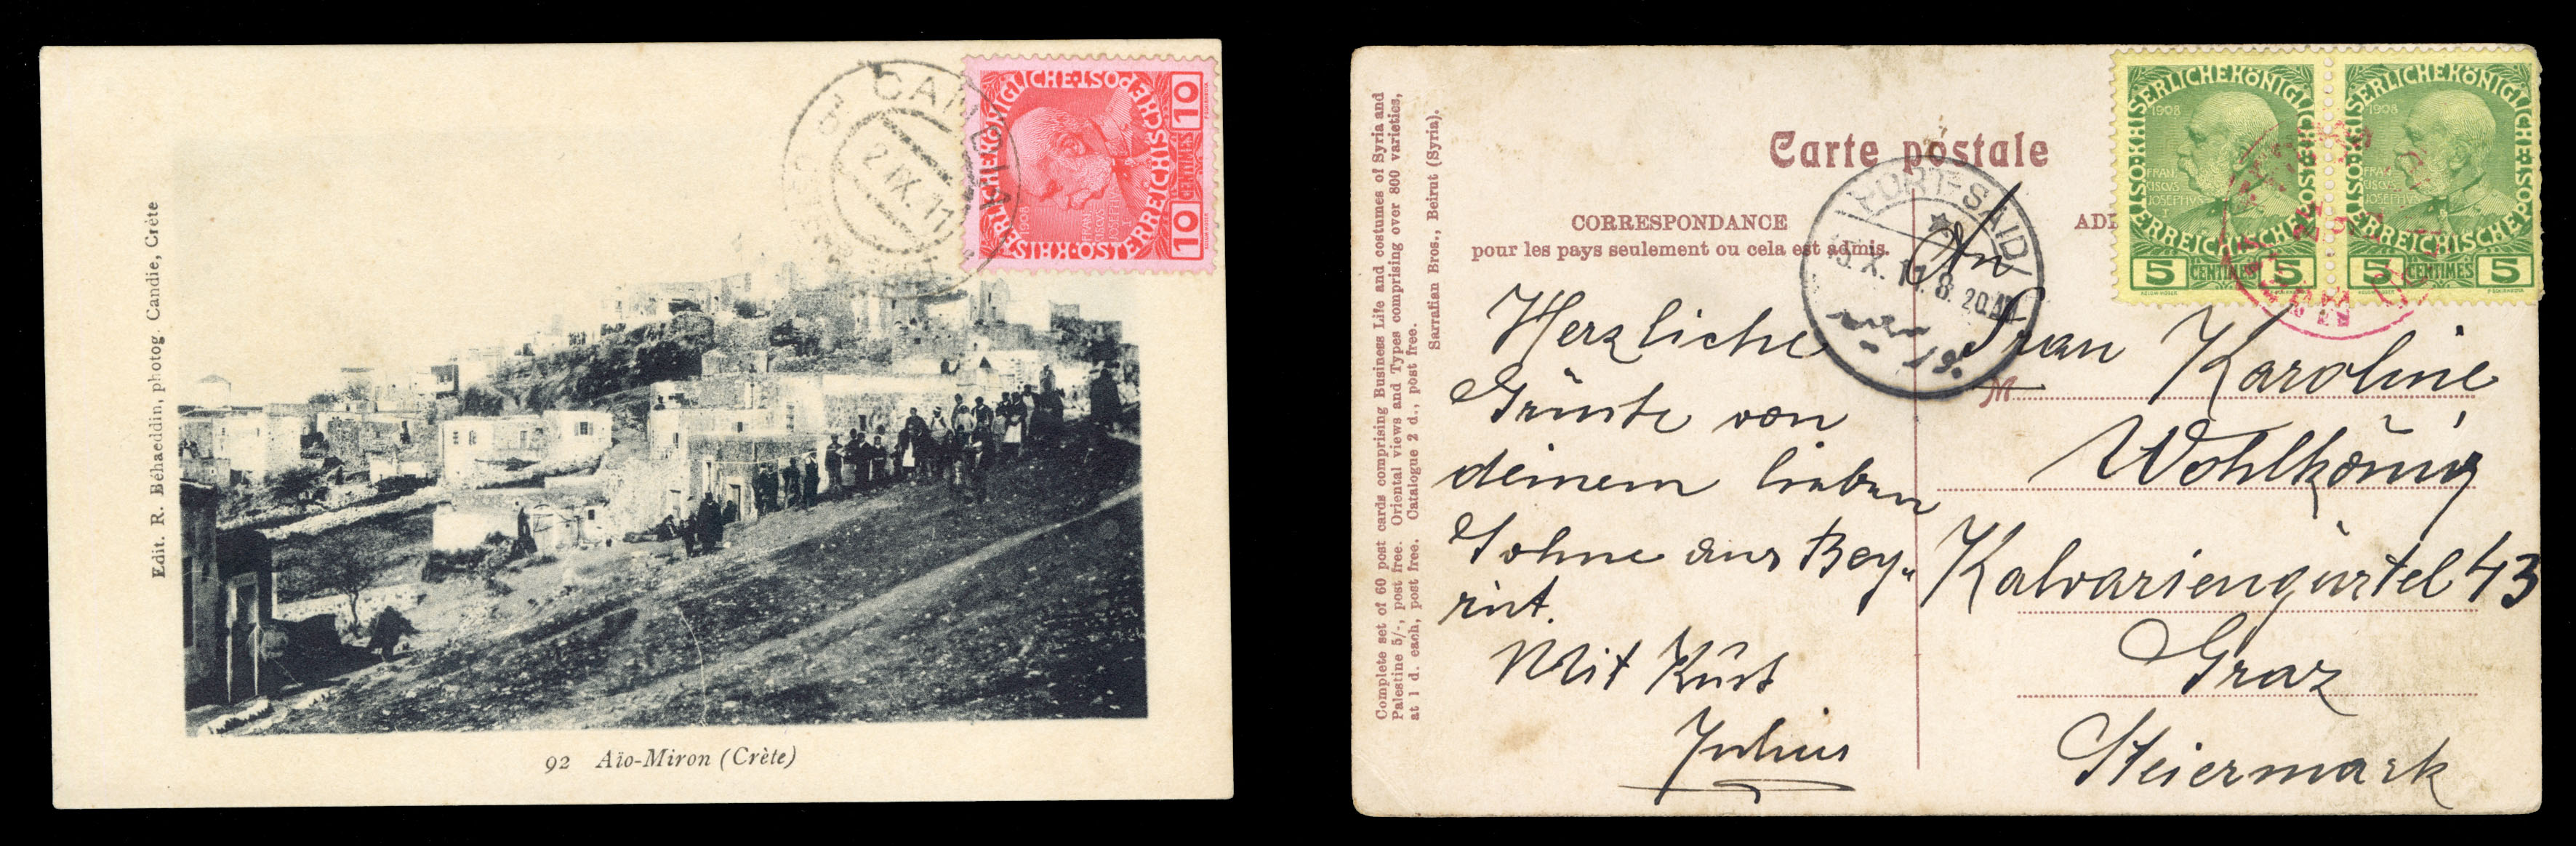 Edit. R. Béhaeddin, photog. Candie, Crète
CANDIA
2 IX. 11
KAISERLICHE KÖNIGLICHE ÖSTERREICHISCHE POST
1908
FRAN
CISCVS
JOSEPHVS
I
10 CENTIMES 10
92 Aïo-Miron (Crète)
Complete set of 60 post cards comprising Business Life and costumes of Syria and
Palestine 5/-, post free. Oriental views and Types comprising over 800 varieties,
at 1 d. each, post free. Catalogue 2 d., post free.
Sarrafian Bros., Beirut (Syria).
Carte postale
CORRESPONDANCE
pour les pays seulement ou cela est admis.
AD
PORT-SAID
X. 11. 8. 20 AM
SERLICHE KÖNIGLICHE
1908
FRAN
CISCVS
JOSEPHVS
I
5 CENTIMES 5
SERLICHE KÖNIGLICHE
1908
FRAN
CISCVS
JOSEPHVS
I
5 CENTIMES 5
Herzliche
Grüße von
deinem lieben
Sohne aus Bey-
rut.
Mit Kust
Julius
An
Frau Karoline
M
Wohlkönig
Kalvariengürtel 43
Graz
Steiermark